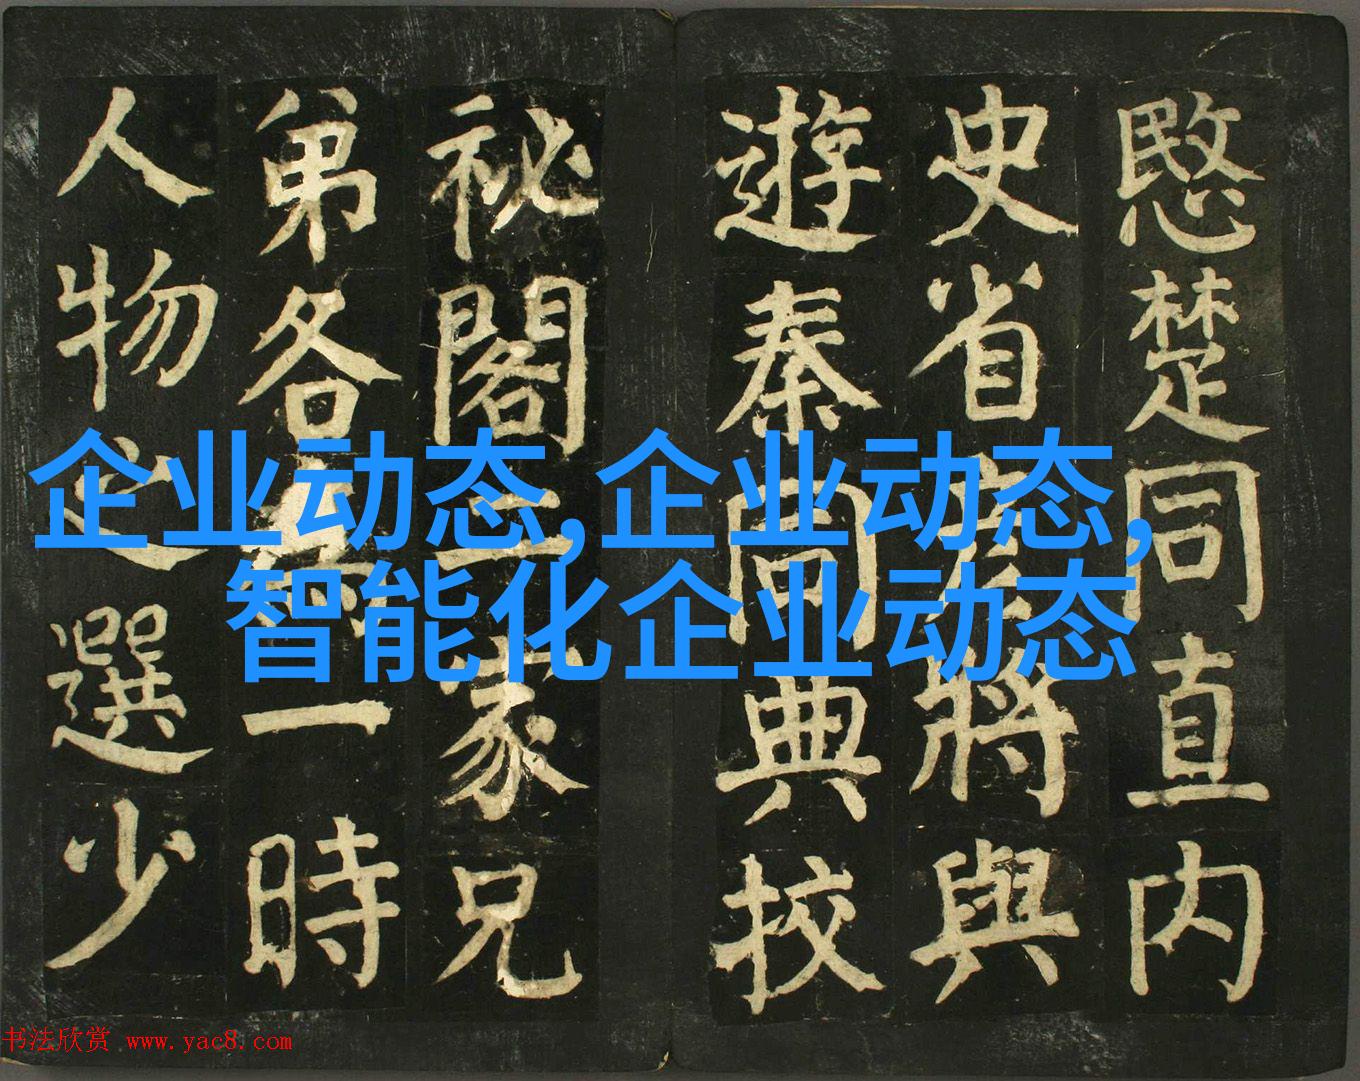 愍楚同直内
史省將與
遊秦同典校
祕閣二家兄
弟各一時
人物之選少
企业动态,企业动态,
智能化企业动态
书法欣赏 www.yac8.com